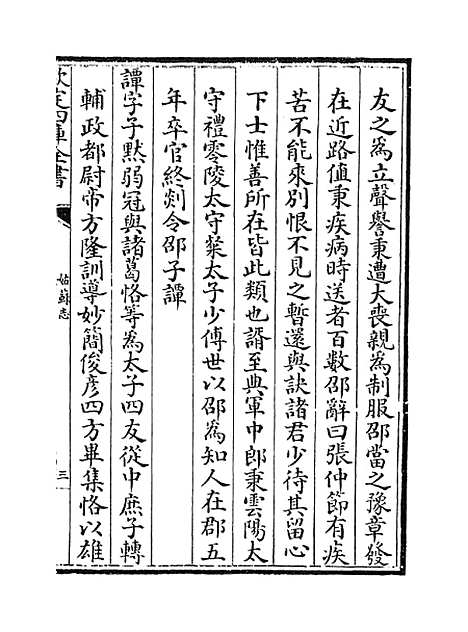 友之爲立聲譽秉遭大喪親爲制服邵當之豫章發
在近路値秉疾病時送者百數邵辭曰張仲節有疾
苦不能來别恨不見之暫還與訣諸君少待其留心
下士惟善所在皆此類也諝至典軍中郎秉雲陽太
守禮零陵太守粲太子少傅世以邵爲知人在郡五
年卒官終剡令邵子譚
譚字子默弱冠與諸葛恪等爲太子四友從中庶子轉
輔政都尉帝方隆訓導妙簡俊彦四方畢集恪以雄
欽定四庫全書
姑蘇志
三